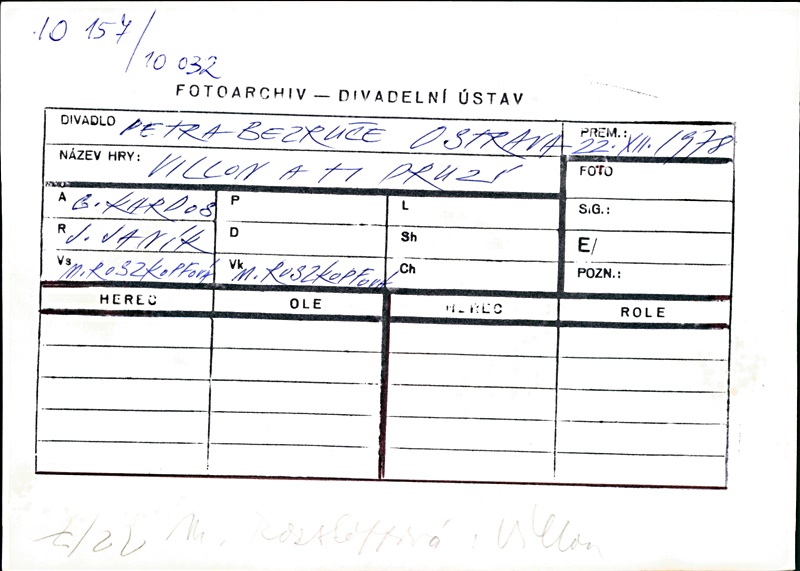 10 157/
10 032
FOTOARCHIV — DIVADELNÍ ÚSTAV
DIVADLO PETRA BEZRUČE OSTRAVA PREM.: 22. XII. 1978
NÁZEV HRY: VILLON A TI DRUZÍ FOTO
A G. KARDOŠ P L SIG.:
R J. JANÍK D Sh E/
Vs M. ROSZKOPFOVÁ Vk M. ROSZKOPFOVÁ Ch POZN.:
HEREC OLE HEREC ROLE
M. Roszkopfová : Villon